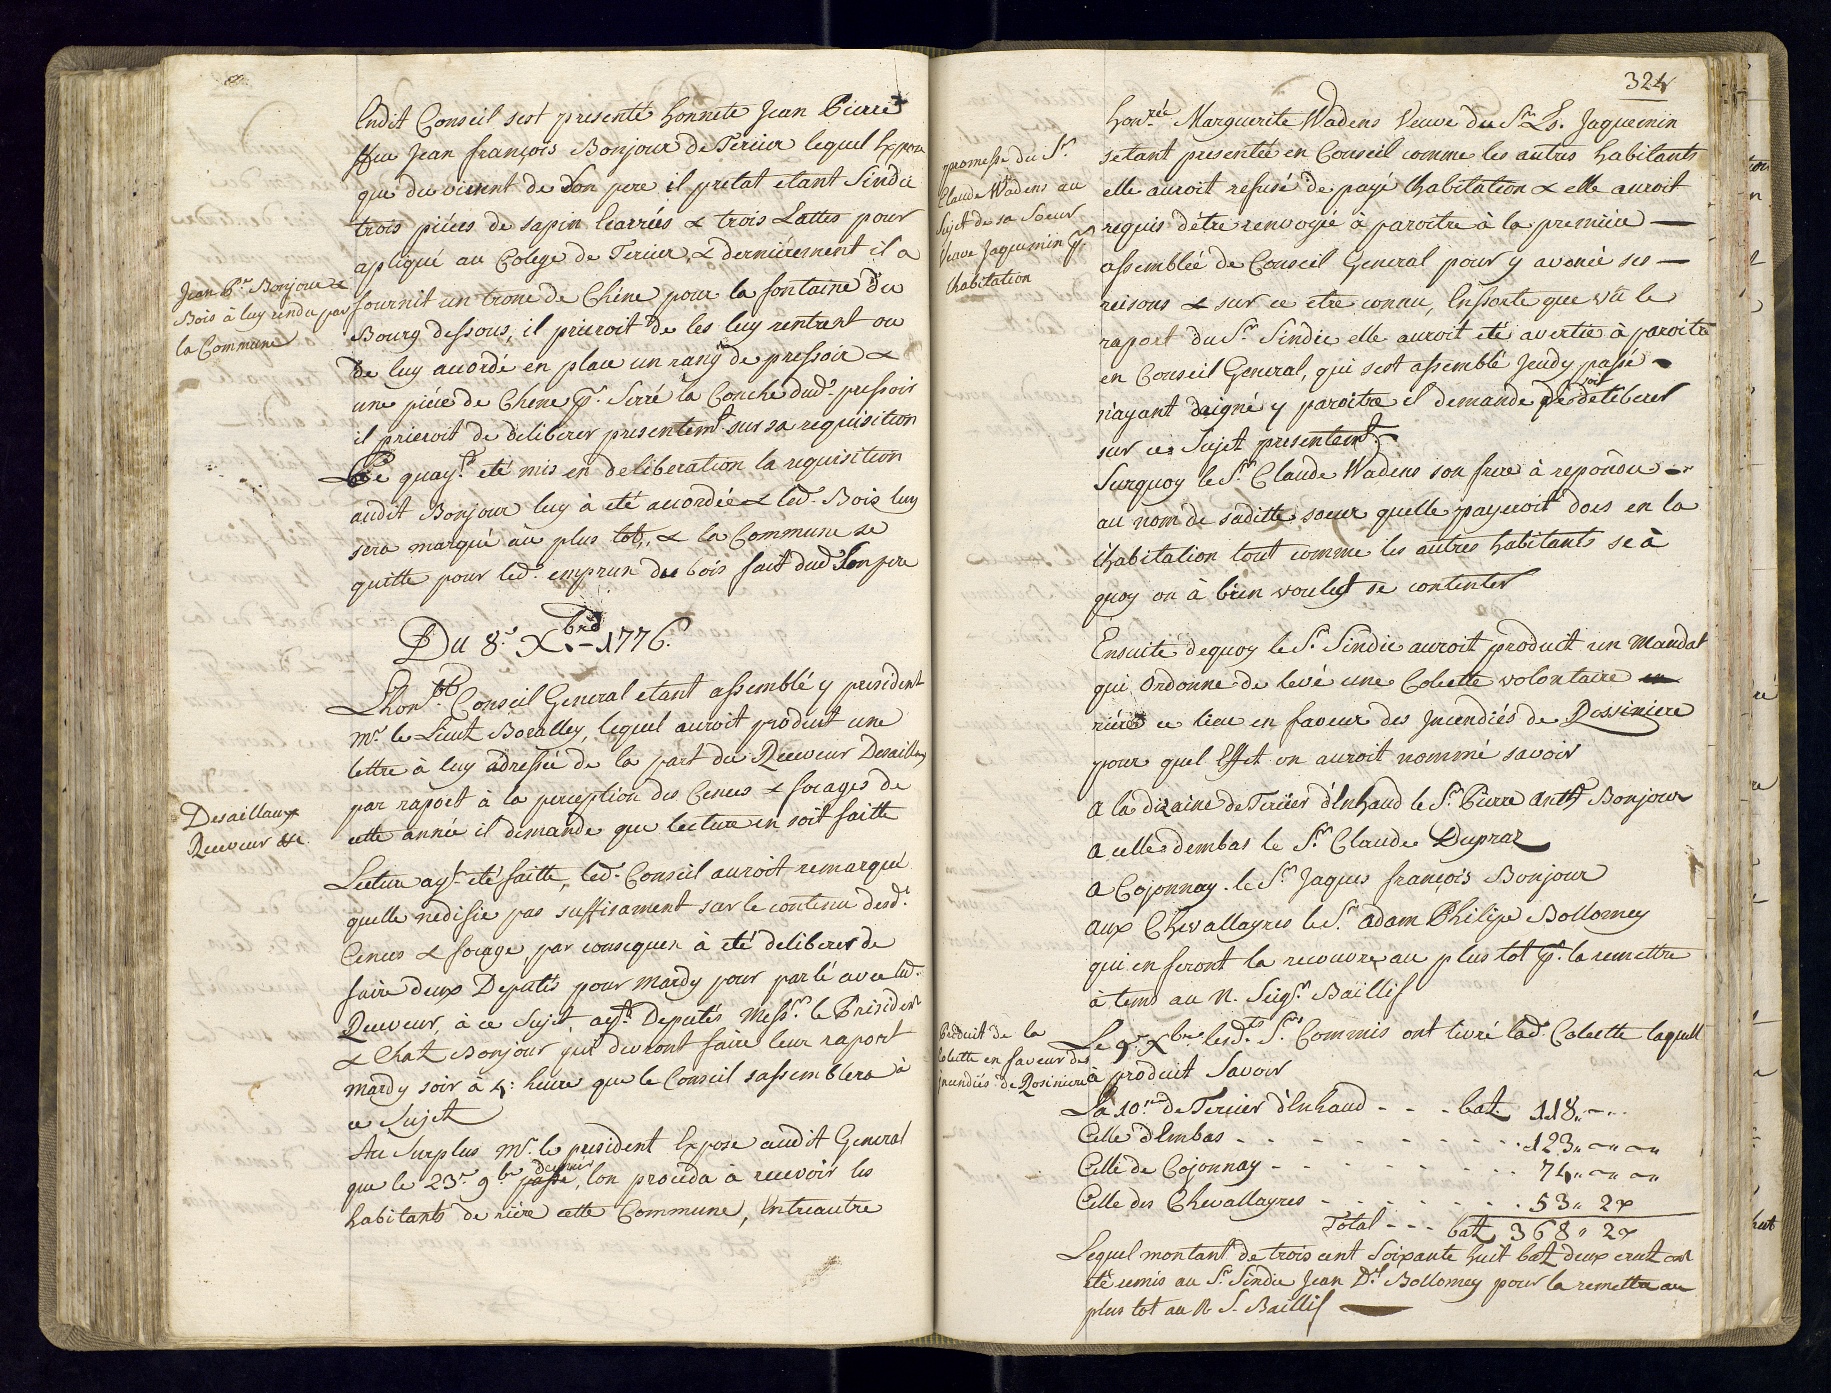 Endit Conseil sest presenté honnete Jean Pierre
ffeu Jean françois Bonjour de Tercier lequel Expose
que du vivent de Son pere il pretat etant Sindic
trois piéces de sapin Ecarriés & trois Lattes pour
apliqué au Colege de Tercier, & dernièrement il a
Jean Pre Bonjour &
Bois à luy rendu par
la Commune
fournit un tronc de Chêne pour la fontaine du
Bourg dessous, il prieroit de les luy rentrent ou
de luy acordé en place un rang de pressoir &
une piéce de Chene pr. Serré la Conche dudt pressoir
il prieroit de deliberer presentemt sur sa requisition
Ce quayt eté mis en deliberation la requisition
audit Bonjour luy à eté acordée & led. Bois luy
sera marqué au plus tot, & la Commune se
quitte pour led. emprun du bois fait dud Son pere
Du 8e Xbre 1776.
Lhonble Conseil General etant assemblé y president
Mr le Lieut Boralley, lequel auroit produit une
lettre à luy adressée de la part du Receveur Desaillaux
Desaillaux
Receveur &c.
par raport à la perception des Cences & focages de
cette année il demande que lecture en soit faitte
Lecture ayt eté faitte, led. Conseil auroit remarqué
quelle nedisie pas suffisament sur le contenu desdt
Cences & focage, par consequen à eté deliberer de
faire deux Deputés pour Mardy pour parlé avec led.
Receveur, à ce Sujet, ayt Deputés Messrs le President
& Chat Bonjour qui devront faire leur raport
mardy soir à 4: heure que le Conseil sassemblera à
ce Sujet
Au Surplus Mr le president Expose audit General
que le 23e 9bre passé dernier, lon proceda à recevoir les
habitants de riere cette Commune, Entreautre
324
honrée Marguerite Wadens Veuve du Sr Ls. Jaquemin
promesse du Sr
Claude Wadens au
Sujet de sa Soeur
Veuve Jaquemin pr
lhabitation
setant presentée en Conseil comme les autres habitants
elle auroit refusé de payé lhabitation & elle auroit
requis dêtre renvoyié à paroitre à la premiere
assemblée de Conseil General pour y avancé ses
reisons & sur ce etre connu, Ensorte que vu le
raport du Sr Sindic elle auroit eté avertie à paroitre
en Conseil General, qui sest assemblé Jeudy passé
n'ayant daigné y paroitre il demande soit deliberer
sur ce Sujet presentemt.
Surquoy le Sr Claude Wadens son frere à repondu
au nom de saditte soeur quelle payeroit dors en la
lhabitation tout comme les autres habitants se à
quoy on à bien voulut se contenter
Ensuite dequoy le Sr Sindic auroit produit un Mandat
qui Ordonne de levé une Colecte volontaire
riere ce lieu en faveur des Incendiés de Rossiniere
pour quel Effet on auroit nommé savoir
a la dizaine de Tercier d'Enhaud le Sr Pierre Anth Bonjour
a celle dembas le Sr Claude Dupraz
a Cojonnay le Sr Jaques françois Bonjour
aux Chevallayres le Sr Adam Philipe Bollomey
qui en feront la recouvre au plus tot pr. la remettre
à tems au N. Seigr Baillif
Produit de la
Colecte en faveur des
Incendiés de Rosiniere
Le 9e Xbre lesdts Srs Commis ont livré lad. Colecte laquelle
à produit Savoir
La 10ne de Tercier d'Enhaud - - - batz 118,, - ..
Celle d'Embas - - - - - - - - - - 123,, - ,, - ,,
Celle de Cojonnay - - - - - - - - - 74,, - ,, - ,,
Celle des Chevallayres - - - - - - 53,, 2x
Total - - - batz 368,, 2x
Lequel montant de trois cent Soixante huit batz deux crutz ont
eté remis au Sr Sindic Jean Dl Bollomey pour la remettre au
plus tot au N. S. Baillif